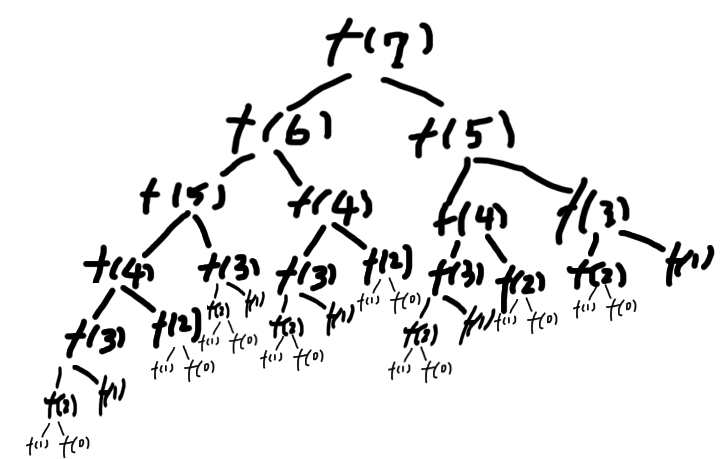 f(7)
f(6) f(5)
f(5) f(4) f(4) f(3)
f(4) f(3) f(3) f(2) f(3) f(2) f(2) f(1)
f(3) f(2) f(2) f(1) f(2) f(1) f(1) f(0) f(2) f(1) f(1) f(0) f(1) f(0)
f(2) f(1) f(1) f(0) f(1) f(0) f(1) f(0) f(1) f(0)
f(1) f(0)